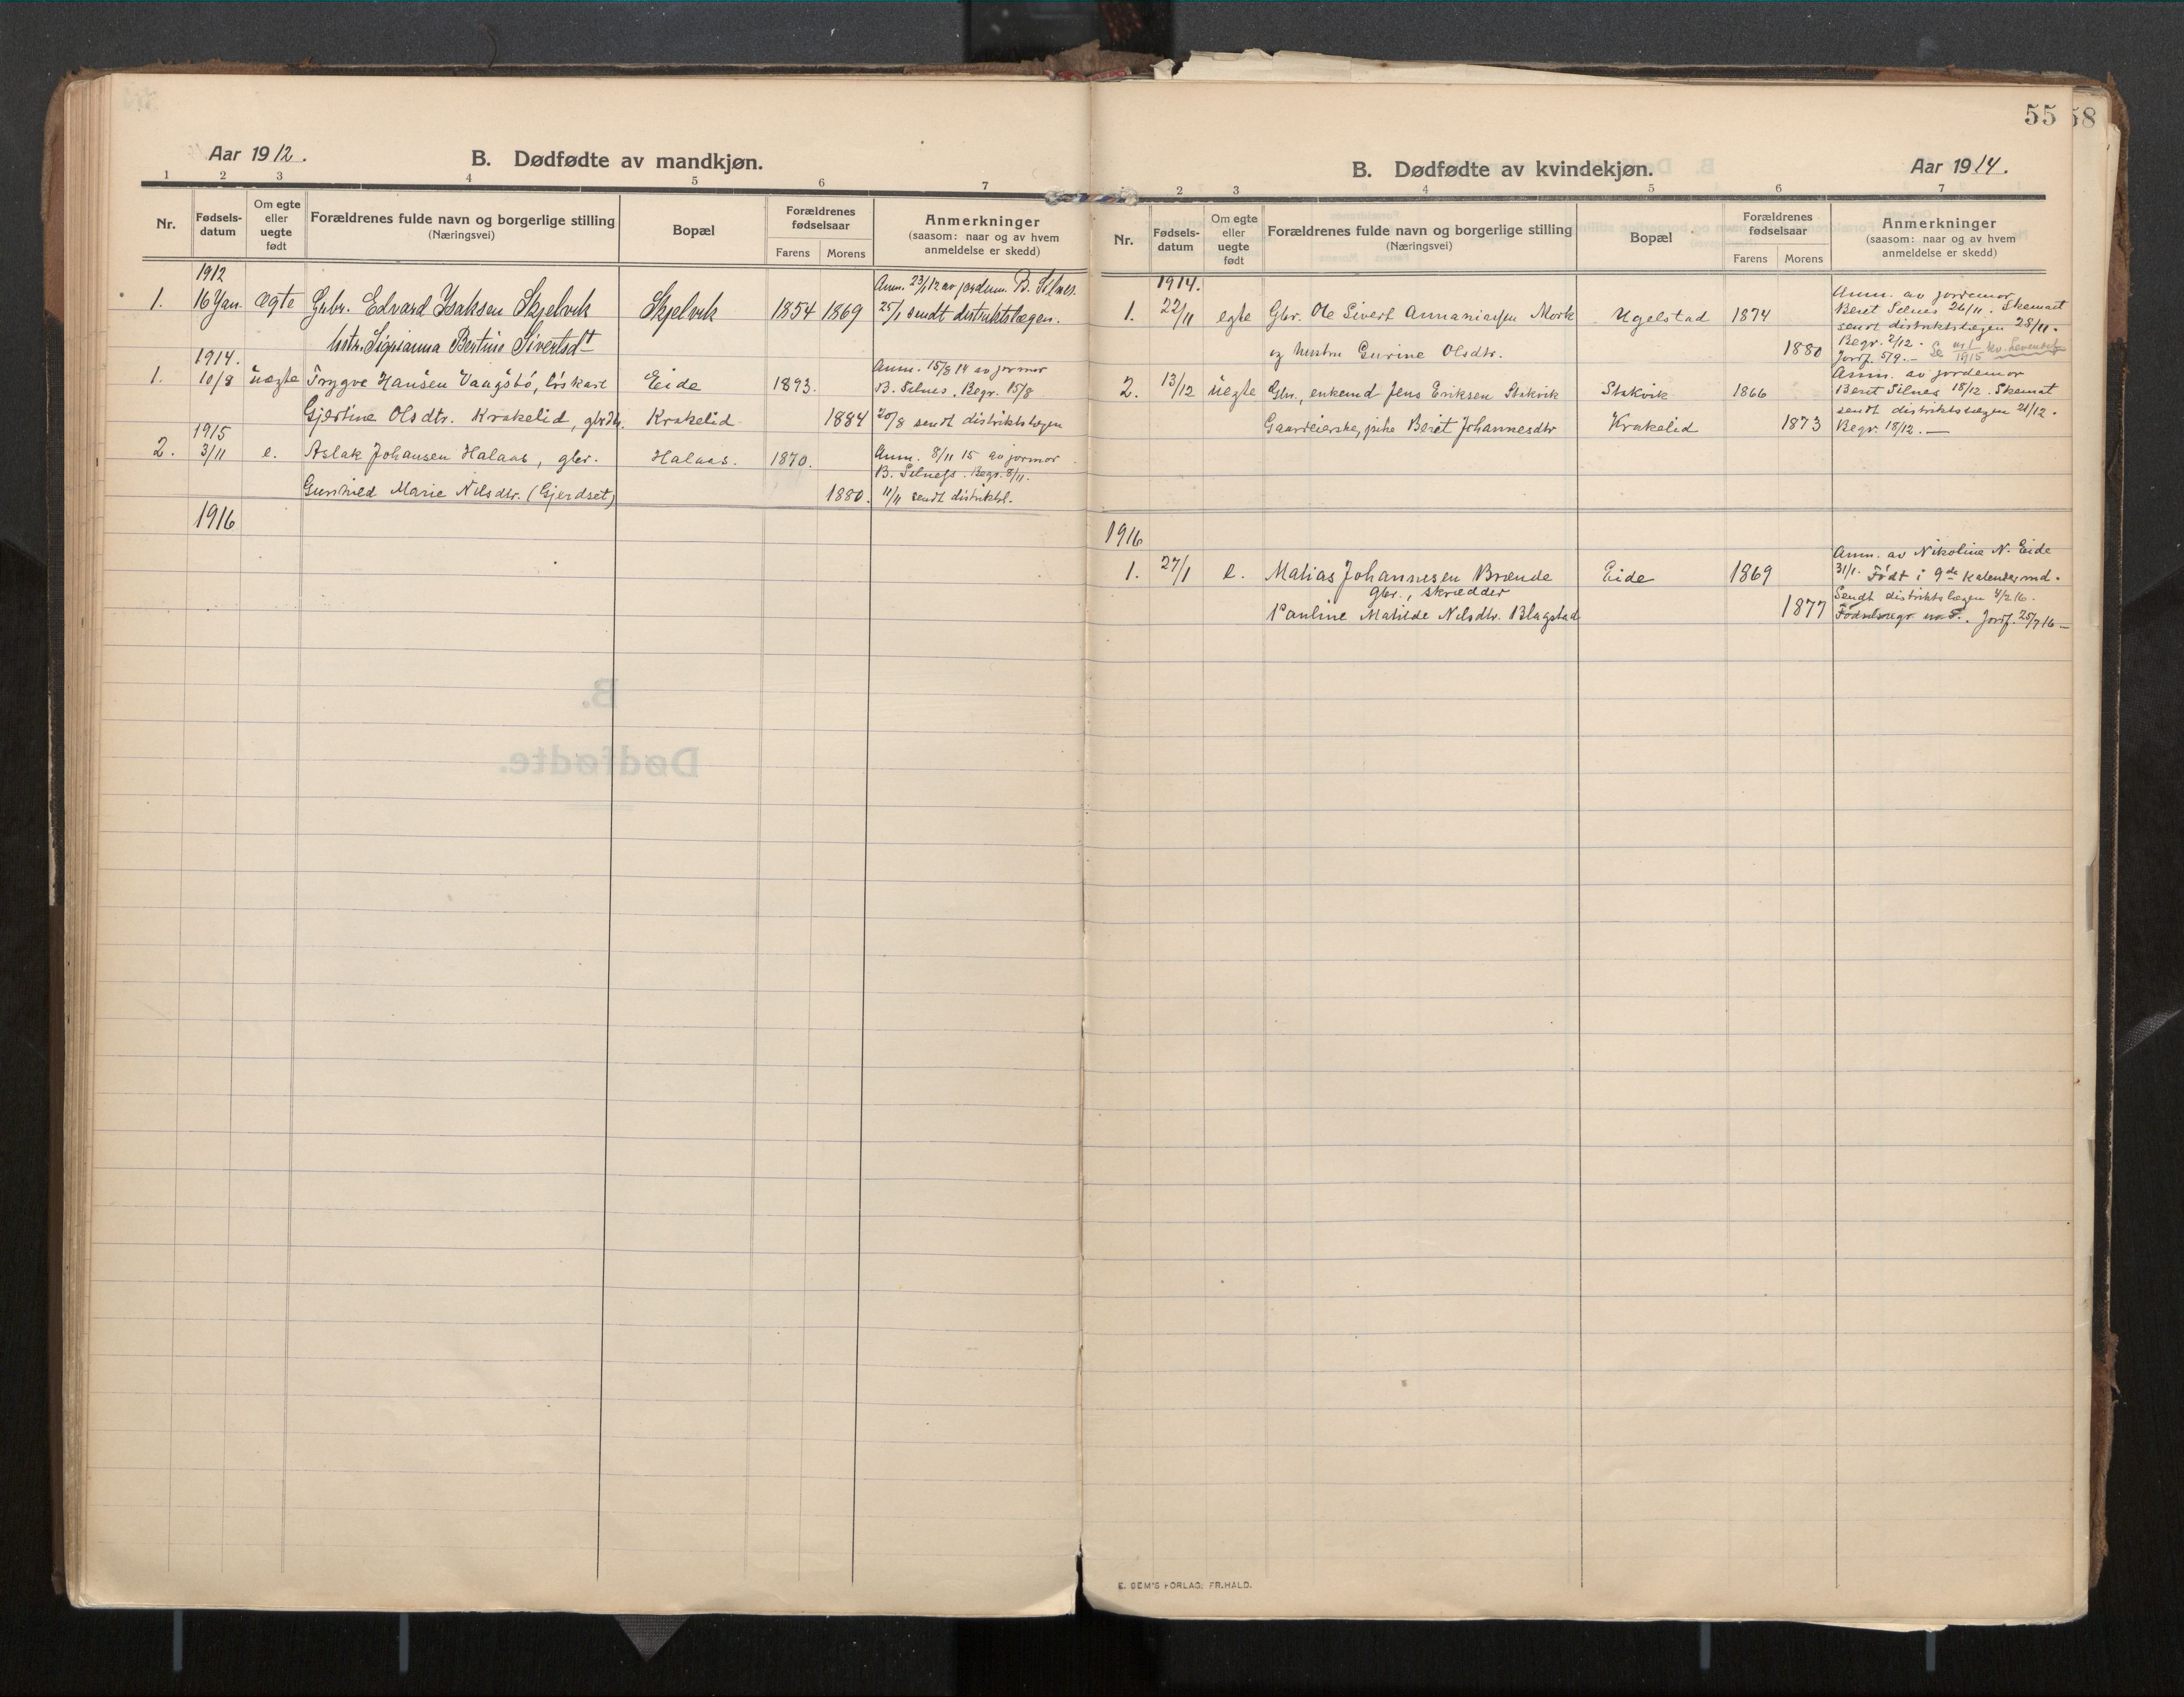 55
58
Aar 1912.
B. Dødfødte av mandkjøn.
1 2 3 4 5 6 7
Nr.
Fødsels-
datum
Om egte
eller
uegte
født
Forældrenes fulde navn og borgerlige stilling
(Næringsvei)
Bopæl
Forældrenes
fødselsaar
Farens Morens
Anmerkninger
(saasom: naar og av hvem
anmeldelse er skedd)
1912
Anm. 23/1 12 av jordem. B. Silnes.
1. 16 Jan. Ægte Gbr. Edvard Isaksen Skjelvik Skjelvik 1854 1869 25/1 sendt distriktslægen.
hstr. Sigrianna Bertine Sivertsdt
1914.
Anm. 15/8 14 av jormor
1. 10/8 uægte Trygve Hansen Vaagsbö, Eide 1893. B. Silnes. Begr. 15/8
Gjertine Olsdtr. Krakelid, gbrdtr. Krakelid 1884 20/8 sendt distriktslægen
1915
2. 3/11 e. Aslak Johansen Halaas, gbr. Halaas. 1870. Anm. 8/11 15 av jormor
B. Silness. Begr. 8/11.
Gunhild Marie Nilsdtr. (Gjerdset) 1880. 11/11 sendt distriktsl.
1916
B.
Dødfødte.
B. Dødfødte av kvindekjøn.
Aar 1914.
2 3 4 5 6 7
Nr.
Fødsels-
datum
Om egte
eller
uegte
født
Forældrenes fulde navn og borgerlige stilling
(Næringsvei)
Bopæl
Forældrenes
fødselsaar
Farens Morens
Anmerkninger
(saasom: naar og av hvem
anmeldelse er skedd)
1914.
Anm. av jordemor
1. 22/11 egte Gbr. Ole Sivert Annaniassen Mork Ugelstad 1874 Beret Silnes 26/11. Skemaet
sendt distriktslægen 28/11.
og hustru Gurine Olsdtr. 1880 Begr. 2/12.
Jordf. 5/9. — Se nr. 1 1915 kv. Levende
Anm. av jordemor
2. 13/12 uegte Gbr., enkemd Jens Eriksen Stakvik Stakvik 1866 Beret Silnes 18/12. Skemat
sendt distriktslægen 21/12.
Gaardeierske, pike Beret Johannesdtr Krakelid 1873 Begr. 18/12. —
1916
Anm. av Nikoline N. Eide
1. 27/1 e. Matias Johannesen Brænde Eide 1869 31/1. Födt i 9de kalendermd.
gbr., skrædder
Sendt distriktslægen 4/2 16.
Pauline Matilde Nilsdtr. Blagstad 1877 Jordf. 25/7 16 —
E. SEM'S FORLAG, FR.HALD.